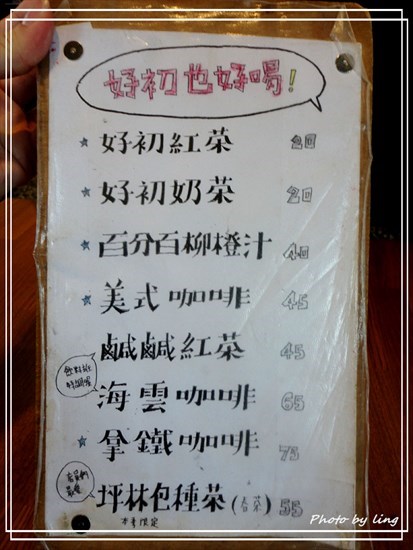 好初也好喝!
★ 好初紅茶 20
★ 好初奶茶 20
★ 百分百柳橙汁 40
★ 美式咖啡 45
鹹鹹紅茶 45
海雲咖啡 65
★ 拿鐵咖啡 75
坪林包種茶(春茶) 55
冬季限定
Photo by ling